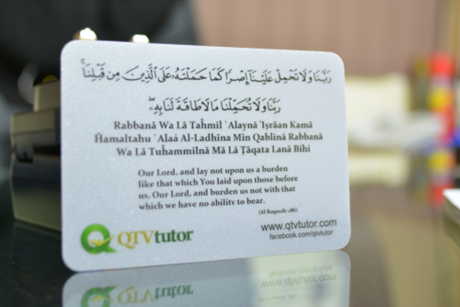 رَبَّنَا وَلَا تَحْمِلْ عَلَيْنَا إِصْرًا كَمَا حَمَلْتَهُ عَلَى الَّذِينَ مِن قَبْلِنَا ۚ
رَبَّنَا وَلَا تُحَمِّلْنَا مَا لَا طَاقَةَ لَنَا بِهِ ۖ
Rabbanā Wa Lā Taĥmil `Alaynā 'Işrāan Kamā
Ĥamaltahu `Alaá Al-Ladhīna Min Qablinā Rabbanā
Wa Lā Tuĥammilnā Mā Lā Ţāqata Lanā Bihi
Our Lord, and lay not upon us a burden
like that which You laid upon those before
us. Our Lord, and burden us not with that
which we have no ability to bear.
(Al Baqarah: 286)
QTVtutor
www.qtvtutor.com
facebook.com/qtvtutor